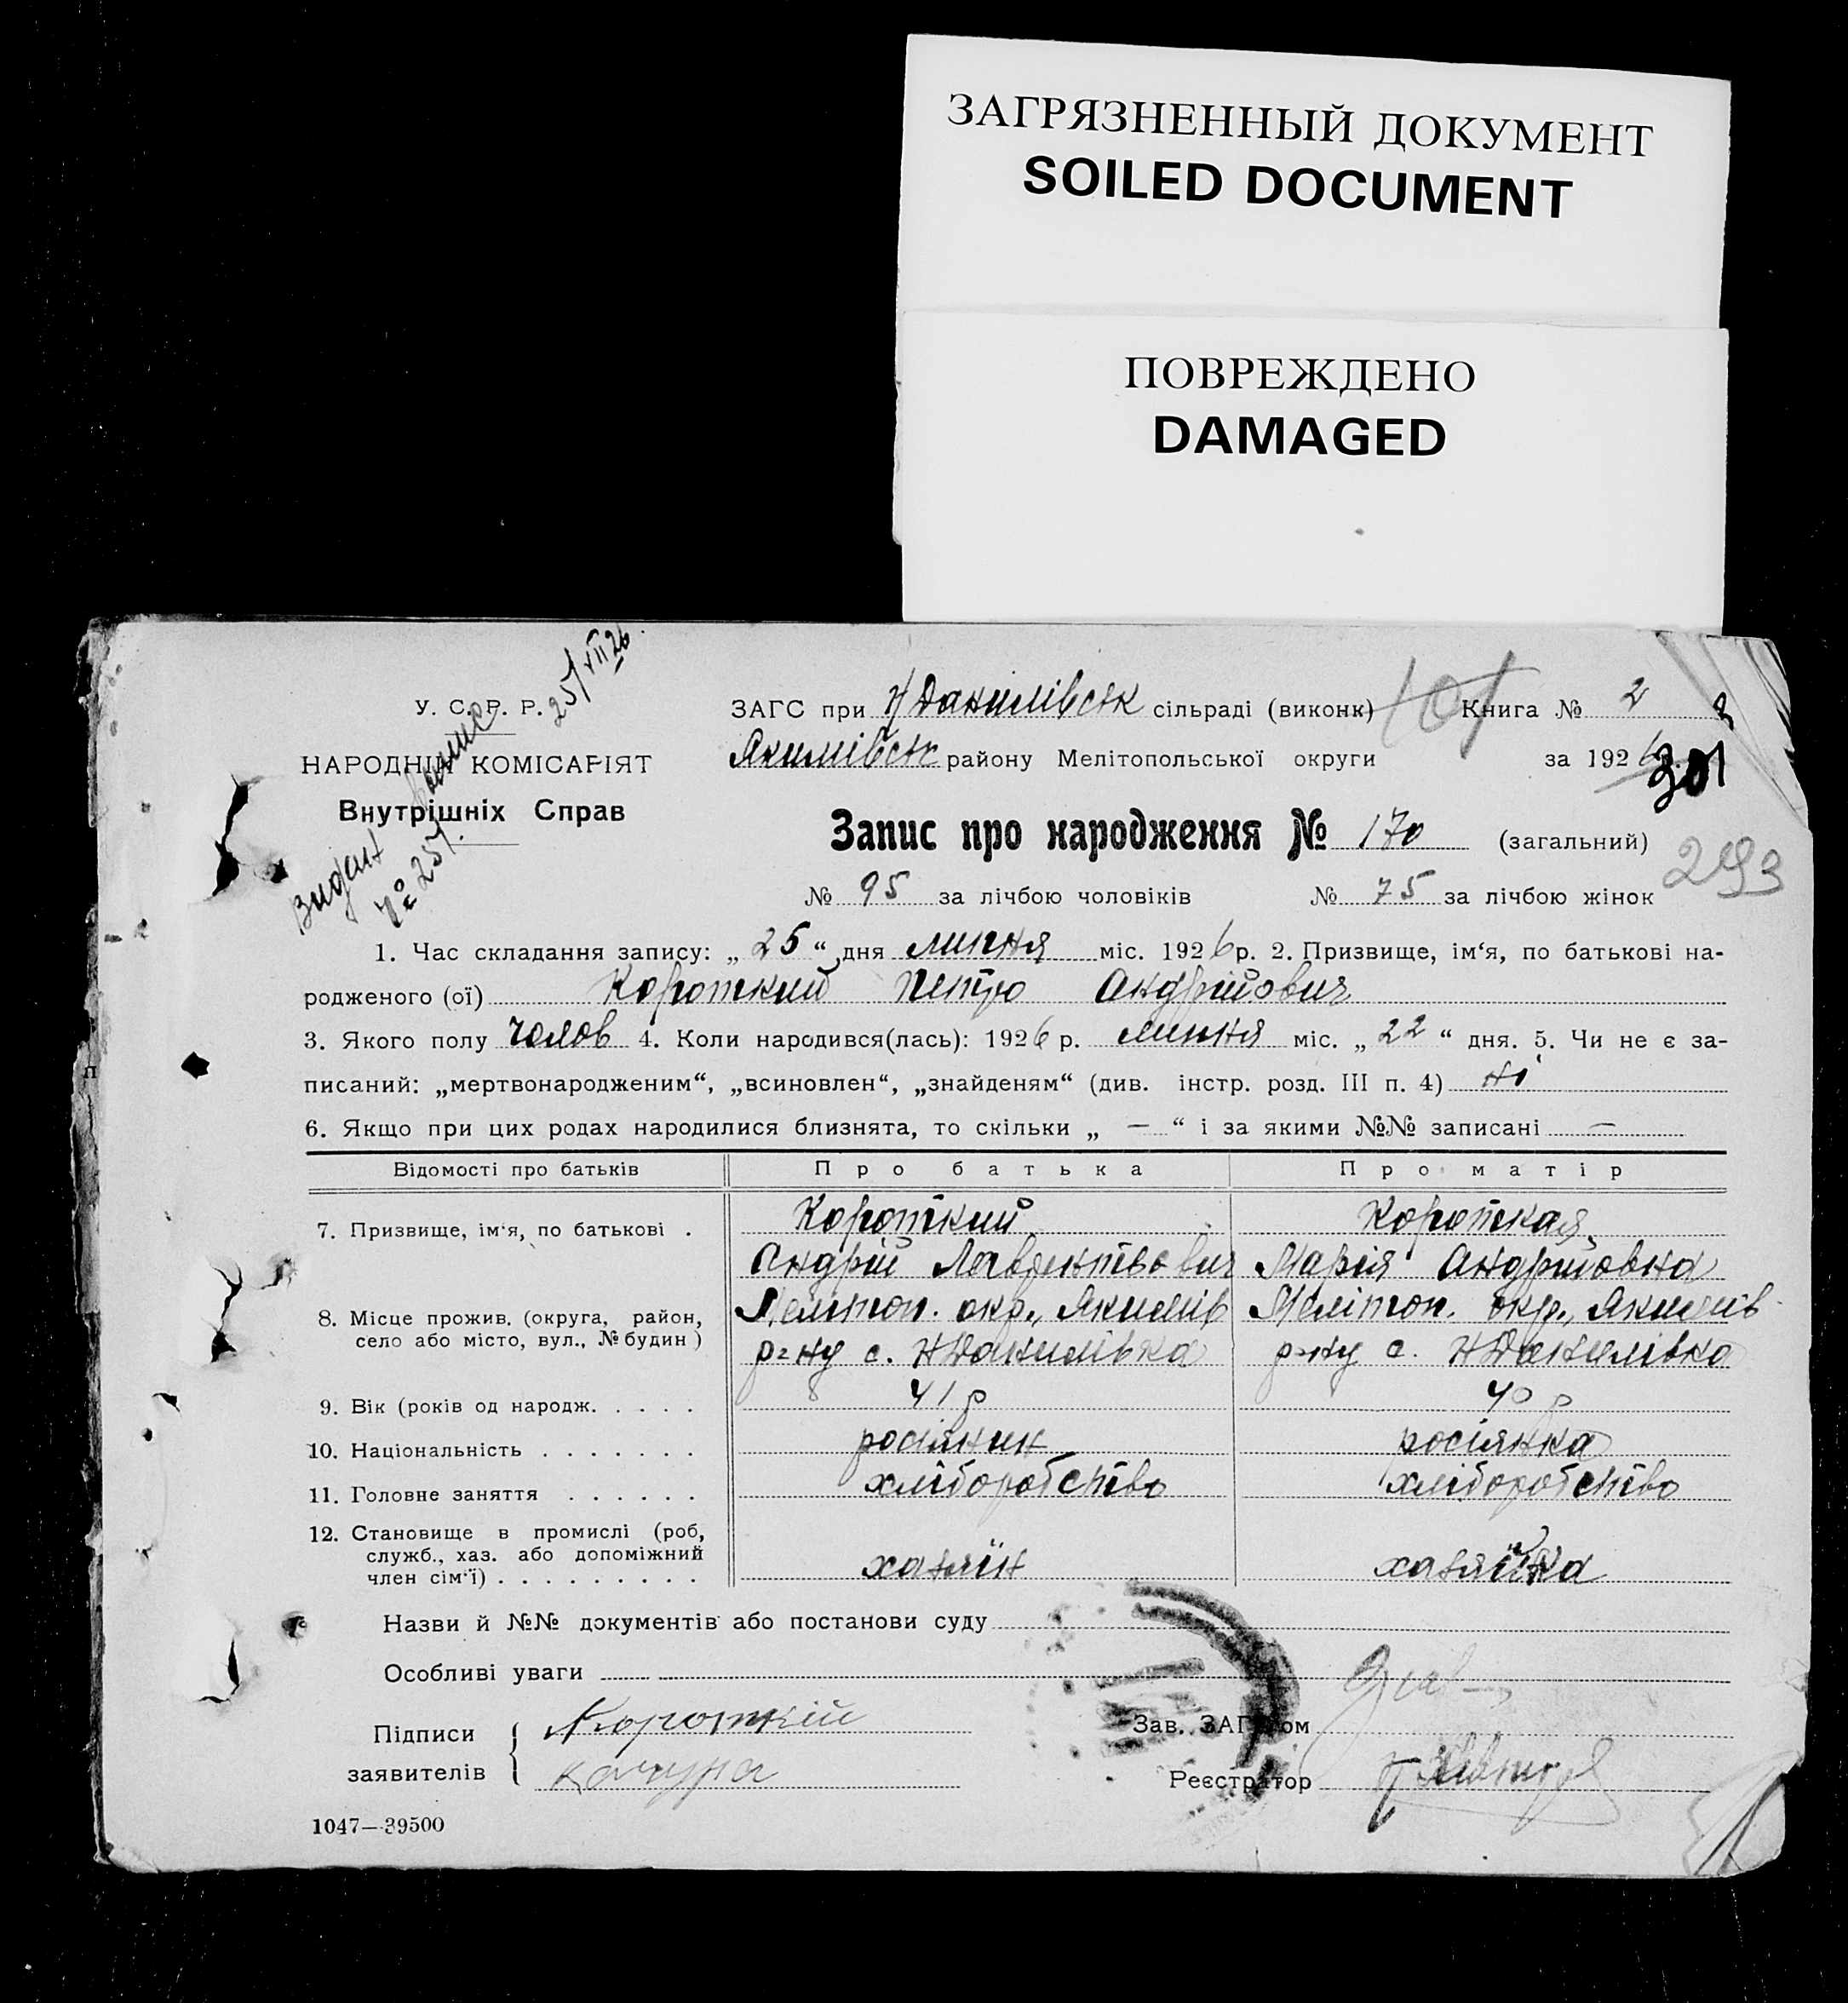 ЗАГРЯЗНЕННЫЙ ДОКУМЕНТ
SOILED DOCUMENT
ПОВРЕЖДЕНО
DAMAGED
У. С. Р. Р.
НАРОДНІЙ КОМІСАРІЯТ
Внутрішніх Справ
Видан виписъ
№ 257. 25/VII 26
ЗАГС при Н/Данилівськ сільраді (виконк) Книга № 2
Якимівськ району Мелітопольської округи за 1926 р.
301
Запис про народження № 170 (загальний)
293
№ 95 за лічбою чоловіків № 75 за лічбою жінок
1. Час складання запису: „ 25 “ дня липня міс. 1926 р. 2. Призвище, ім‘я, по батькові на-
родженого (ої) Короткий Петро Андрійович
3. Якого полу чолов 4. Коли народився(лась): 1926 р. липня міс. „ 22 “ дня. 5. Чи не є за-
писаний: „мертвонародженим“, „всиновлен“, „знайденям“ (див. інстр. розд. III п. 4) ні
6. Якщо при цих родах народилися близнята, то скільки „ — “ і за якими №№ записані —
Відомості про батьків Про батька Про матір
7. Призвище, ім‘я, по батькові . Короткий Короткая
Андрій Лаврентьевич Марія Андрійовна
8. Місце прожив. (округа, район, Мелітоп. окр., Якимів Мелітоп. окр., Якимів
село або місто, вул., № будин) р=ну с. НДанилівка р=ну с. НДанилівка
9. Вік (років од народж. . . . . 41 р 40 р
10. Національність . . . . . . . росіянин росіянка
11. Головне заняття . . . . . . хліборобство хліборобство
12. Становище в промислі (роб,
служб., хаз. або допоміжний
член сім‘ї) . . . . . . . . . хазяїн хазяйка
Назви й №№ документів або постанови суду
Особливі уваги
Підписи Короткій Зав. ЗАГ‘ом
заявителів Качура Реєстратор
1047—39500